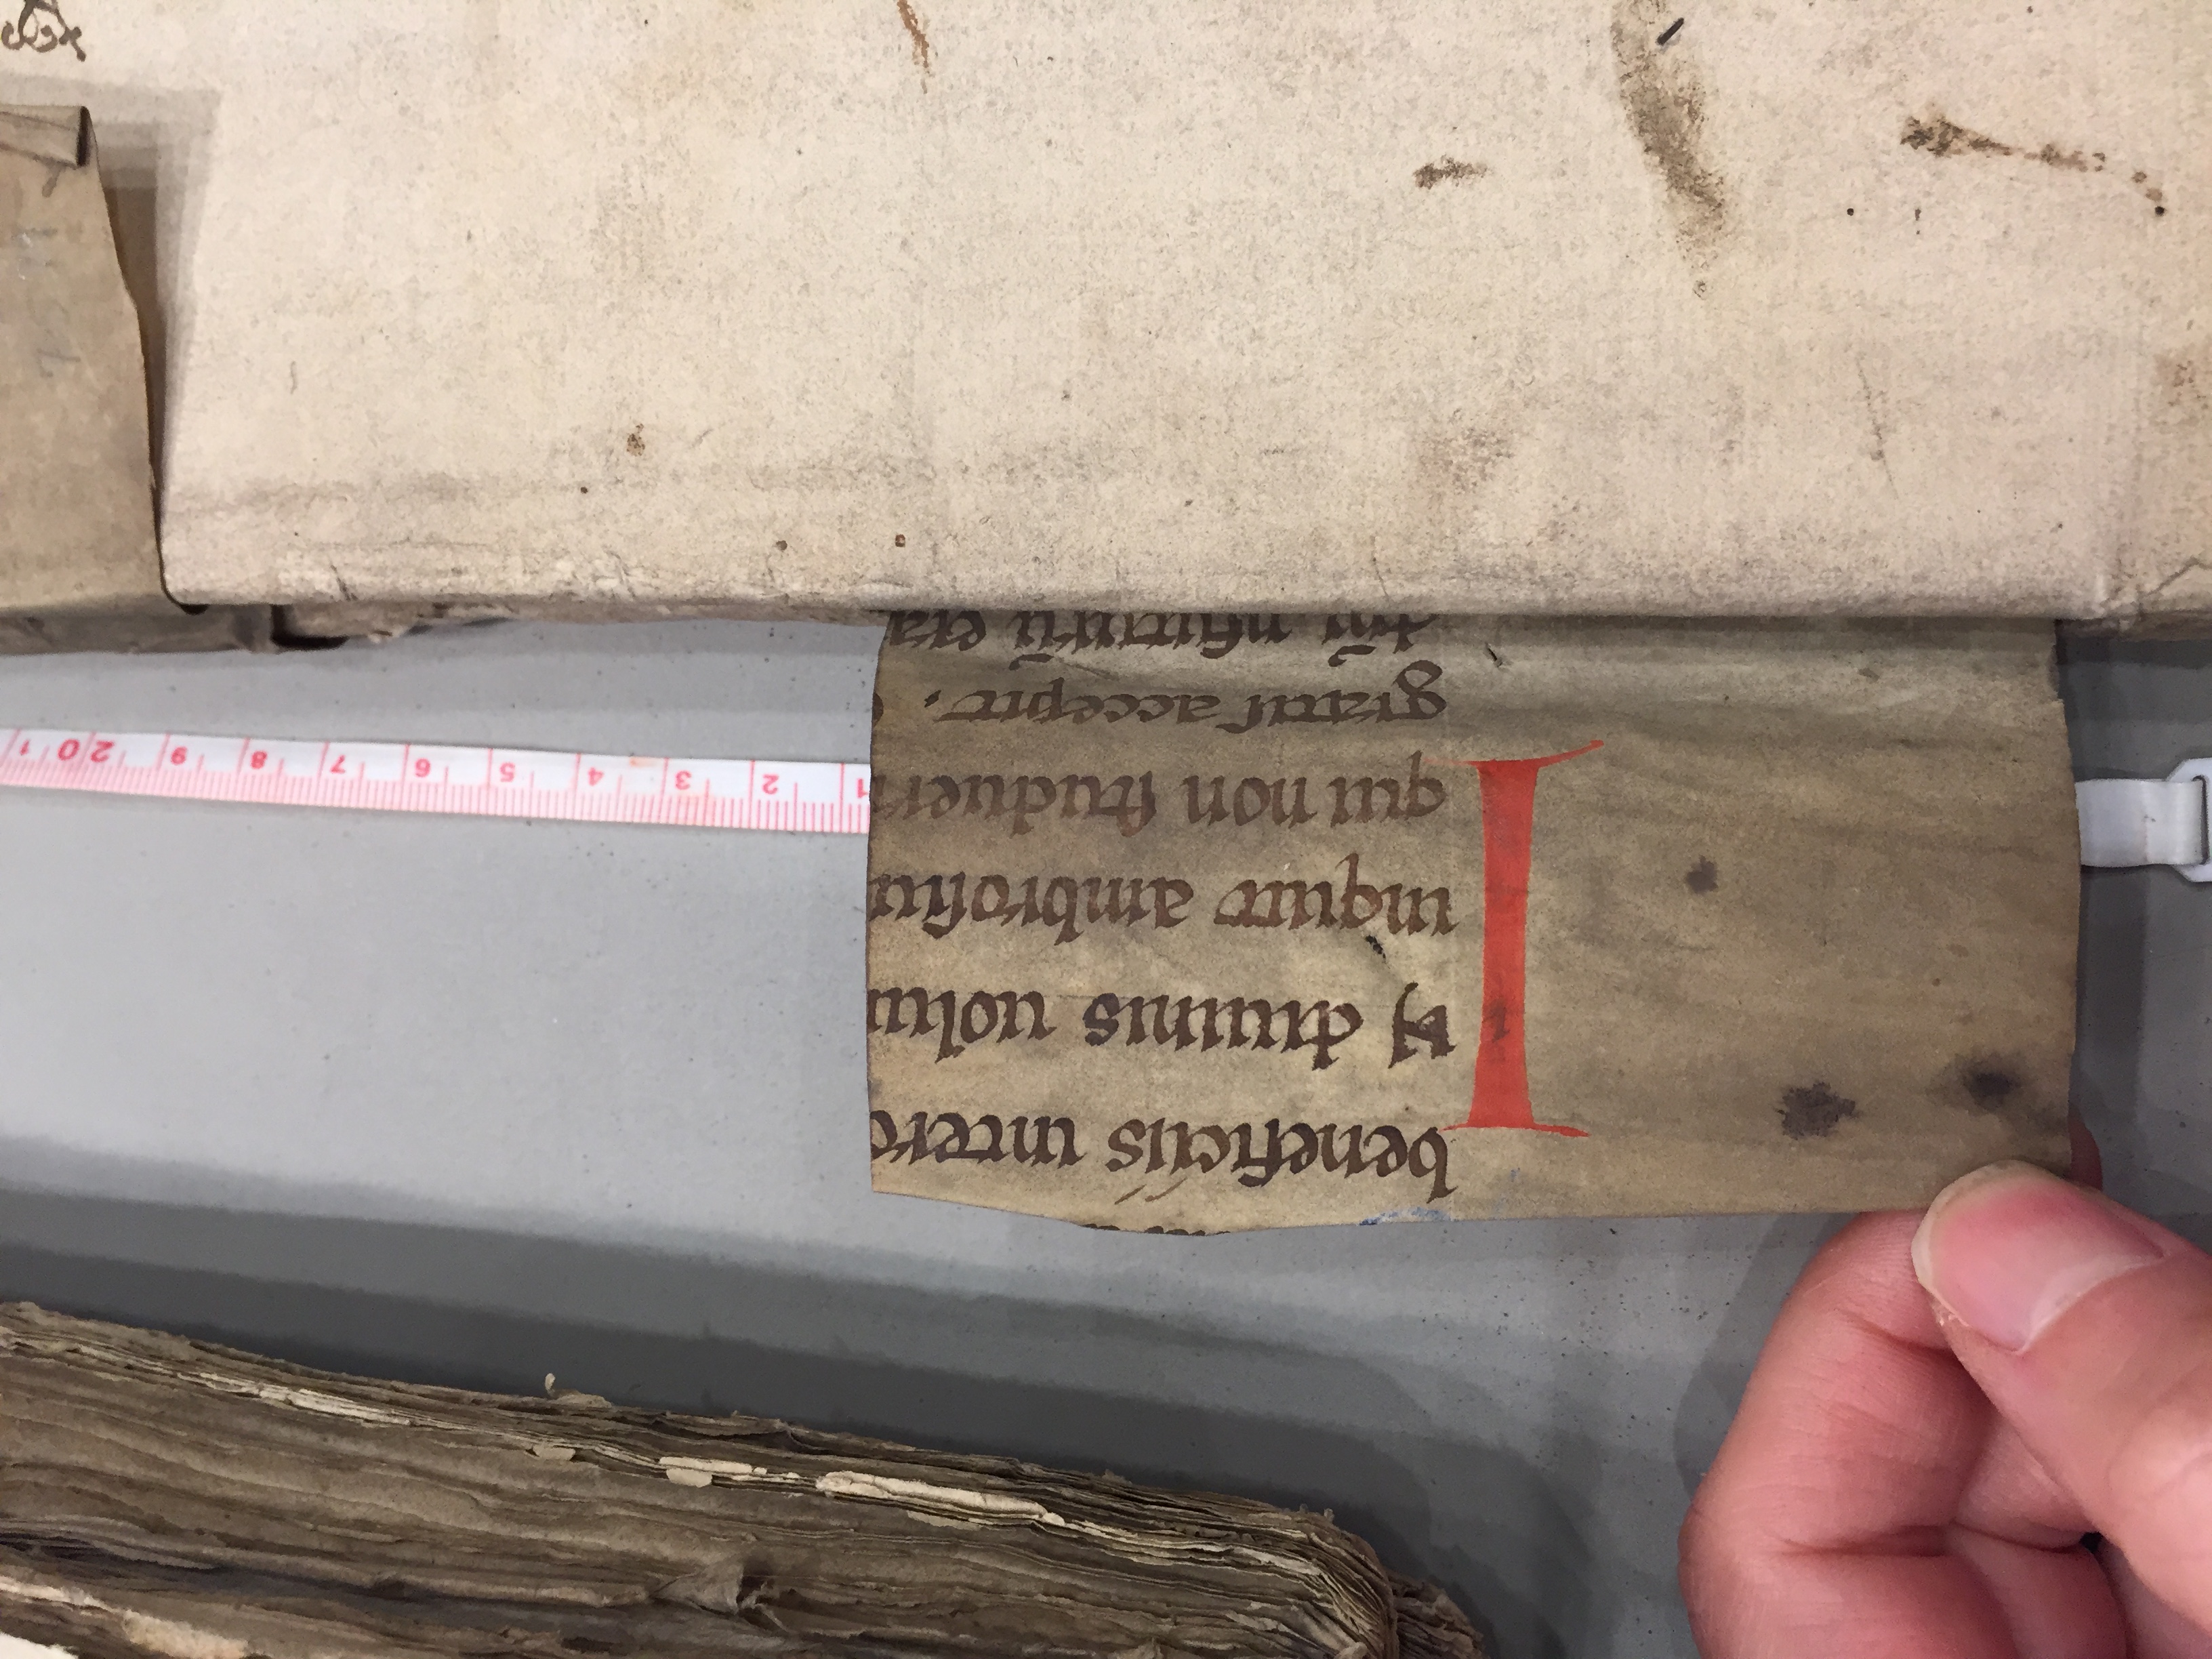 beneficiis inter
IN diuinis uolu
inquit ambrosiu
qui non studuer
gratis accepit.
era
1 2 3 4 5 6 7 8 9 20 1